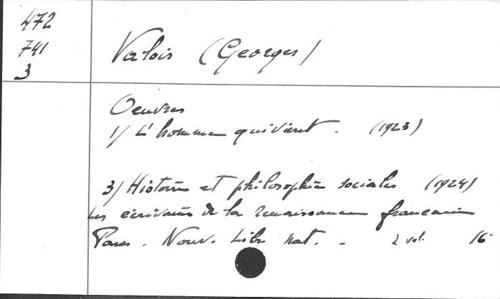 472
741
3
Valois (Georges)
Oeuvres
1/ L'homme qui vient. (1923)
3/ Histoire et philosophie sociales (1924)
Les écrivains de la renaissance française
Paris. Nouv. Libr. nat. - 2 vol. 16°